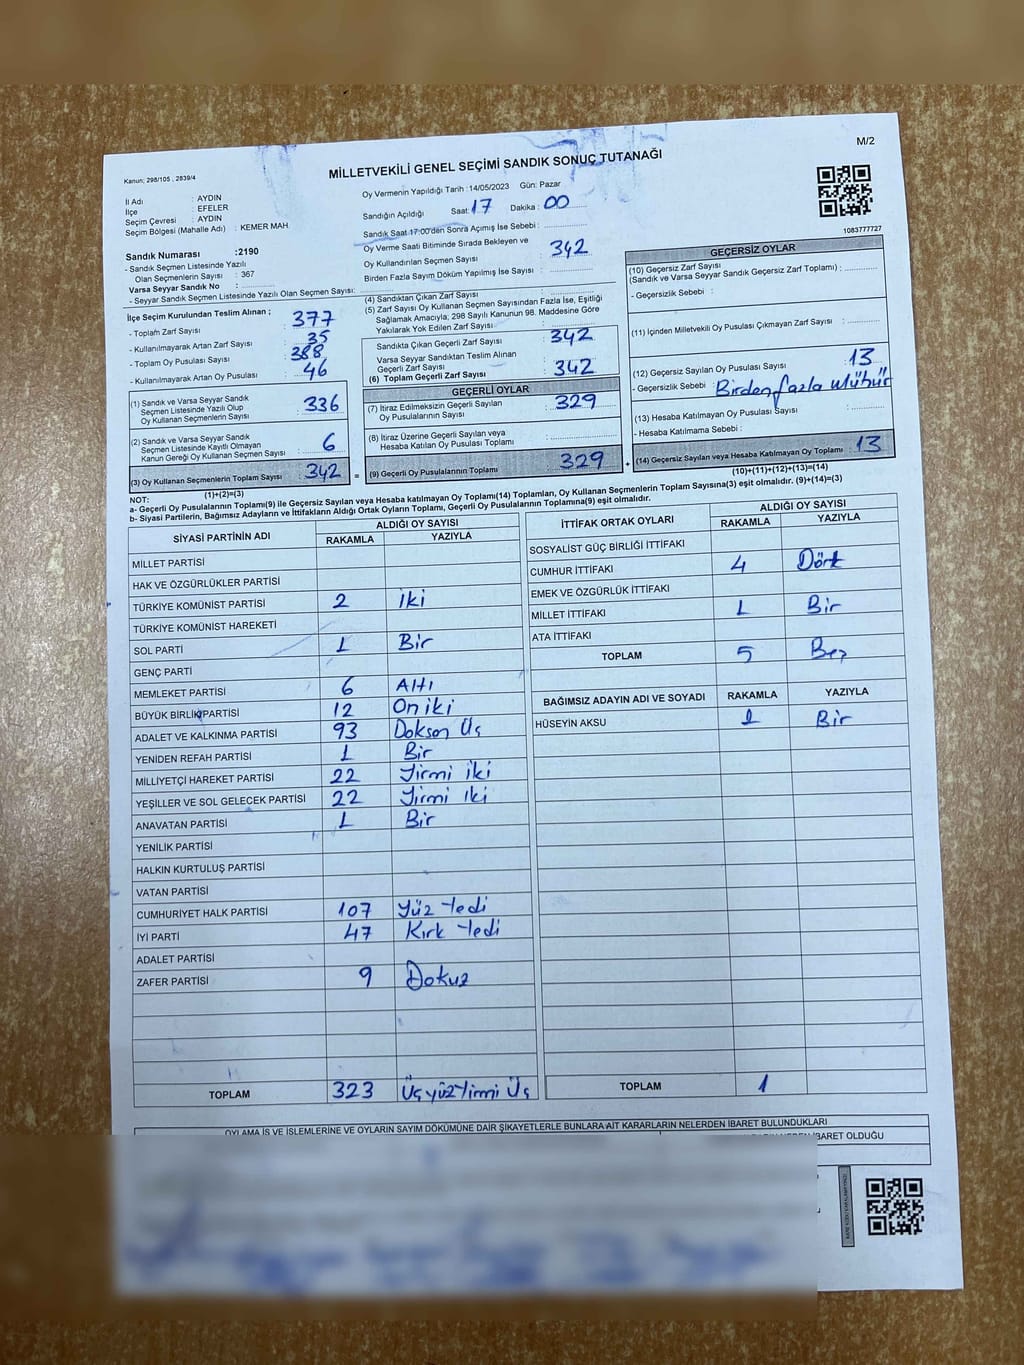 M/2
MİLLETVEKİLİ GENEL SEÇİMİ SANDIK SONUÇ TUTANAĞI
Kanun; 298/105 , 2839/4
İl Adı : AYDIN
İlçe : EFELER
Seçim Çevresi : AYDIN
Seçim Bölgesi (Mahalle Adı) : KEMER MAH
Oy Vermenin Yapıldığı Tarih : 14/05/2023 Gün: Pazar
Sandığın Açıldığı Saat: 17 Dakika : 00
Sandık Saat 17:00'den Sonra Açılmış İse Sebebi :
Oy Verme Saati Bitiminde Sırada Bekleyen ve
Oy Kullandırılan Seçmen Sayısı : 342
Birden Fazla Sayım Döküm Yapılmış İse Sayısı :
1083777727
Sandık Numarası :2190
- Sandık Seçmen Listesinde Yazılı
Olan Seçmenlerin Sayısı : 367
Varsa Seyyar Sandık No :
- Seyyar Sandık Seçmen Listesinde Yazılı Olan Seçmen Sayısı:
İlçe Seçim Kurulundan Teslim Alınan ;
- Toplam Zarf Sayısı : 377
- Kullanılmayarak Artan Zarf Sayısı : 35
- Toplam Oy Pusulası Sayısı : 388
- Kullanılmayarak Artan Oy Pusulası : 46
(1) Sandık ve Varsa Seyyar Sandık
Seçmen Listesinde Yazılı Olup
Oy Kullanan Seçmenlerin Sayısı : 336
(2) Sandık ve Varsa Seyyar Sandık
Seçmen Listesinde Kayıtlı Olmayan
Kanun Gereği Oy Kullanan Seçmen Sayısı : 6
(3) Oy Kullanan Seçmenlerin Toplam Sayısı : 342
(1)+(2)=(3)
(4) Sandıktan Çıkan Zarf Sayısı :
(5) Zarf Sayısı Oy Kullanan Seçmen Sayısından Fazla İse, Eşitliği
Sağlamak Amacıyla; 298 Sayılı Kanunun 98. Maddesine Göre
Yakılarak Yok Edilen Zarf Sayısı :
Sandıkta Çıkan Geçerli Zarf Sayısı : 342
Varsa Seyyar Sandıktan Teslim Alınan
Geçerli Zarf Sayısı :
(6) Toplam Geçerli Zarf Sayısı : 342
GEÇERLİ OYLAR
(7) İtiraz Edilmeksizin Geçerli Sayılan
Oy Pusulalarının Sayısı : 329
(8) İtiraz Üzerine Geçerli Sayılan veya
Hesaba Katılan Oy Pusulası Toplamı :
= (9) Geçerli Oy Pusulalarının Toplamı : 329
GEÇERSİZ OYLAR
(10) Geçersiz Zarf Sayısı
(Sandık ve Varsa Seyyar Sandık Geçersiz Zarf Toplamı) :
- Geçersizlik Sebebi :
(11) İçinden Milletvekili Oy Pusulası Çıkmayan Zarf Sayısı :
(12) Geçersiz Sayılan Oy Pusulası Sayısı : 13
- Geçersizlik Sebebi : Birden fazla Mühür
(13) Hesaba Katılmayan Oy Pusulası Sayısı :
- Hesaba Katılmama Sebebi :
+ (14) Geçersiz Sayılan veya Hesaba Katılmayan Oy Toplamı : 13
(10)+(11)+(12)+(13)=(14)
NOT:
a- Geçerli Oy Pusulalarının Toplamı(9) ile Geçersiz Sayılan veya Hesaba katılmayan Oy Toplamı(14) Toplamları, Oy Kullanan Seçmenlerin Toplam Sayısına(3) eşit olmalıdır. (9)+(14)=(3)
b- Siyasi Partilerin, Bağımsız Adayların ve İttifakların Aldığı Ortak Oyların Toplamı, Geçerli Oy Pusulalarının Toplamına(9) eşit olmalıdır.
SİYASİ PARTİNİN ADI ALDIĞI OY SAYISI
RAKAMLA YAZIYLA
MİLLET PARTİSİ
HAK VE ÖZGÜRLÜKLER PARTİSİ
TÜRKİYE KOMÜNİST PARTİSİ 2 iki
TÜRKİYE KOMÜNİST HAREKETİ
SOL PARTİ 1 Bir
GENÇ PARTİ
MEMLEKET PARTİSİ 6 Altı
BÜYÜK BİRLİK PARTİSİ 12 On iki
ADALET VE KALKINMA PARTİSİ 93 Doksan Üç
YENİDEN REFAH PARTİSİ 1 Bir
MİLLİYETÇİ HAREKET PARTİSİ 22 Yirmi iki
YEŞİLLER VE SOL GELECEK PARTİSİ 22 Yirmi iki
ANAVATAN PARTİSİ 1 Bir
YENİLİK PARTİSİ
HALKIN KURTULUŞ PARTİSİ
VATAN PARTİSİ
CUMHURİYET HALK PARTİSİ 107 Yüz Yedi
İYİ PARTİ 47 Kırk Yedi
ADALET PARTİSİ
ZAFER PARTİSİ 9 Dokuz
TOPLAM 323 Üç yüz Yirmi Üç
İTTİFAK ORTAK OYLARI ALDIĞI OY SAYISI
RAKAMLA YAZIYLA
SOSYALİST GÜÇ BİRLİĞİ İTTİFAKI
CUMHUR İTTİFAKI 4 Dört
EMEK VE ÖZGÜRLÜK İTTİFAKI
MİLLET İTTİFAKI 1 Bir
ATA İTTİFAKI
TOPLAM 5 Beş
BAĞIMSIZ ADAYIN ADI VE SOYADI RAKAMLA YAZIYLA
HÜSEYİN AKSU 1 Bir
TOPLAM 1
OYLAMA İŞ VE İŞLEMLERİNE VE OYLARIN SAYIM DÖKÜMÜNE DAİR ŞİKAYETLERLE BUNLARA AİT KARARLARIN NELERDEN İBARET BULUNDUKLARI
İBARET OLDUĞU